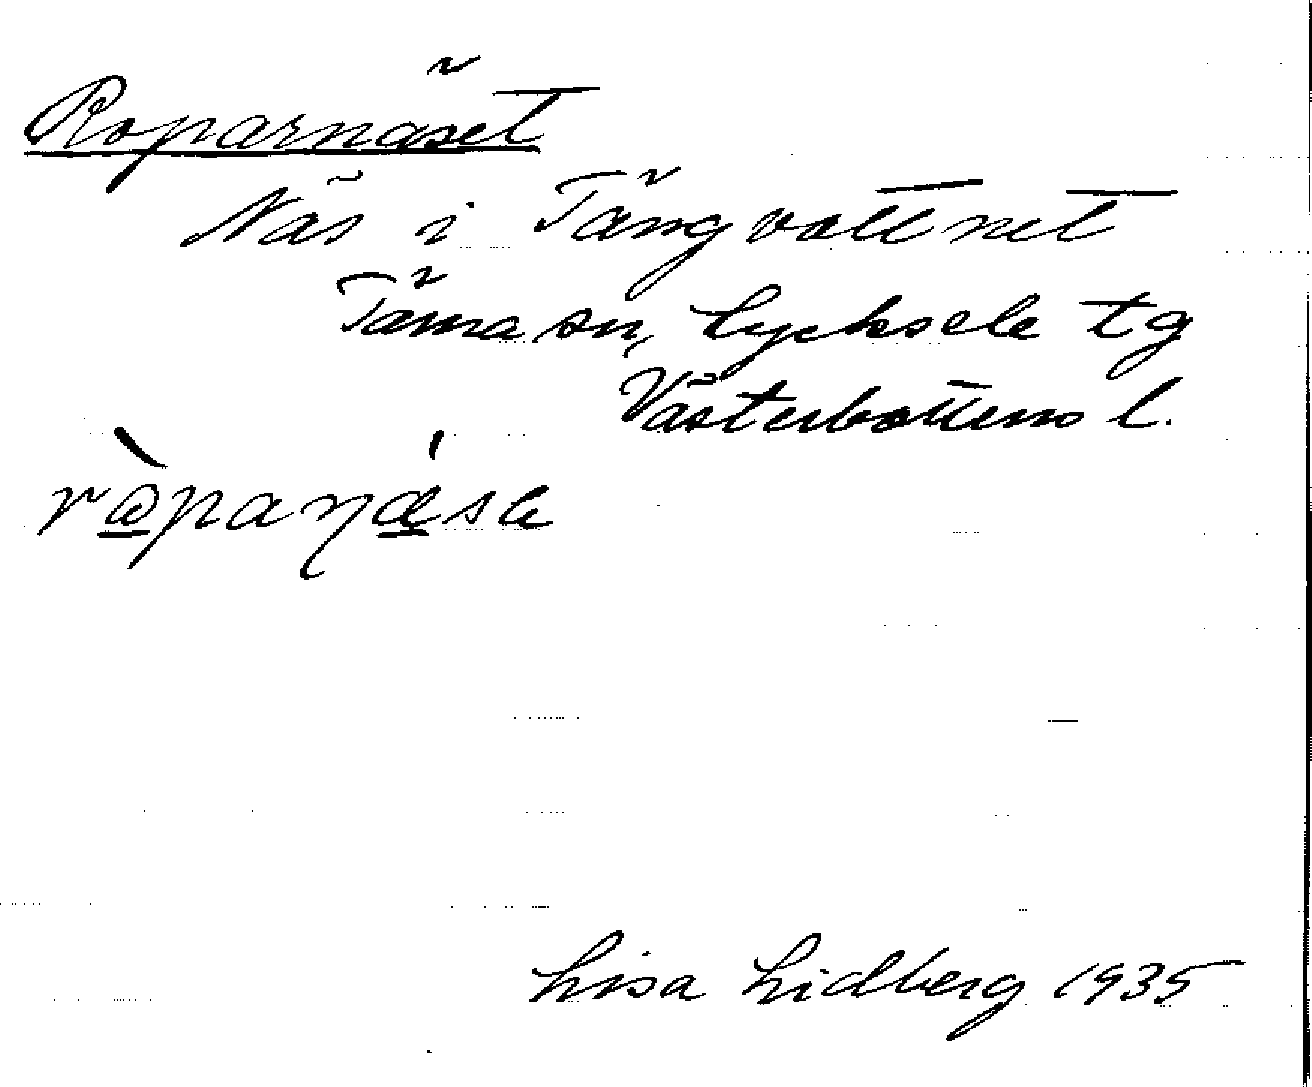 Roparnäset
Näs i Tängvattnet
Tärna sn, Lycksele tg
Västerbottens l.
Lisa Lidberg 1935